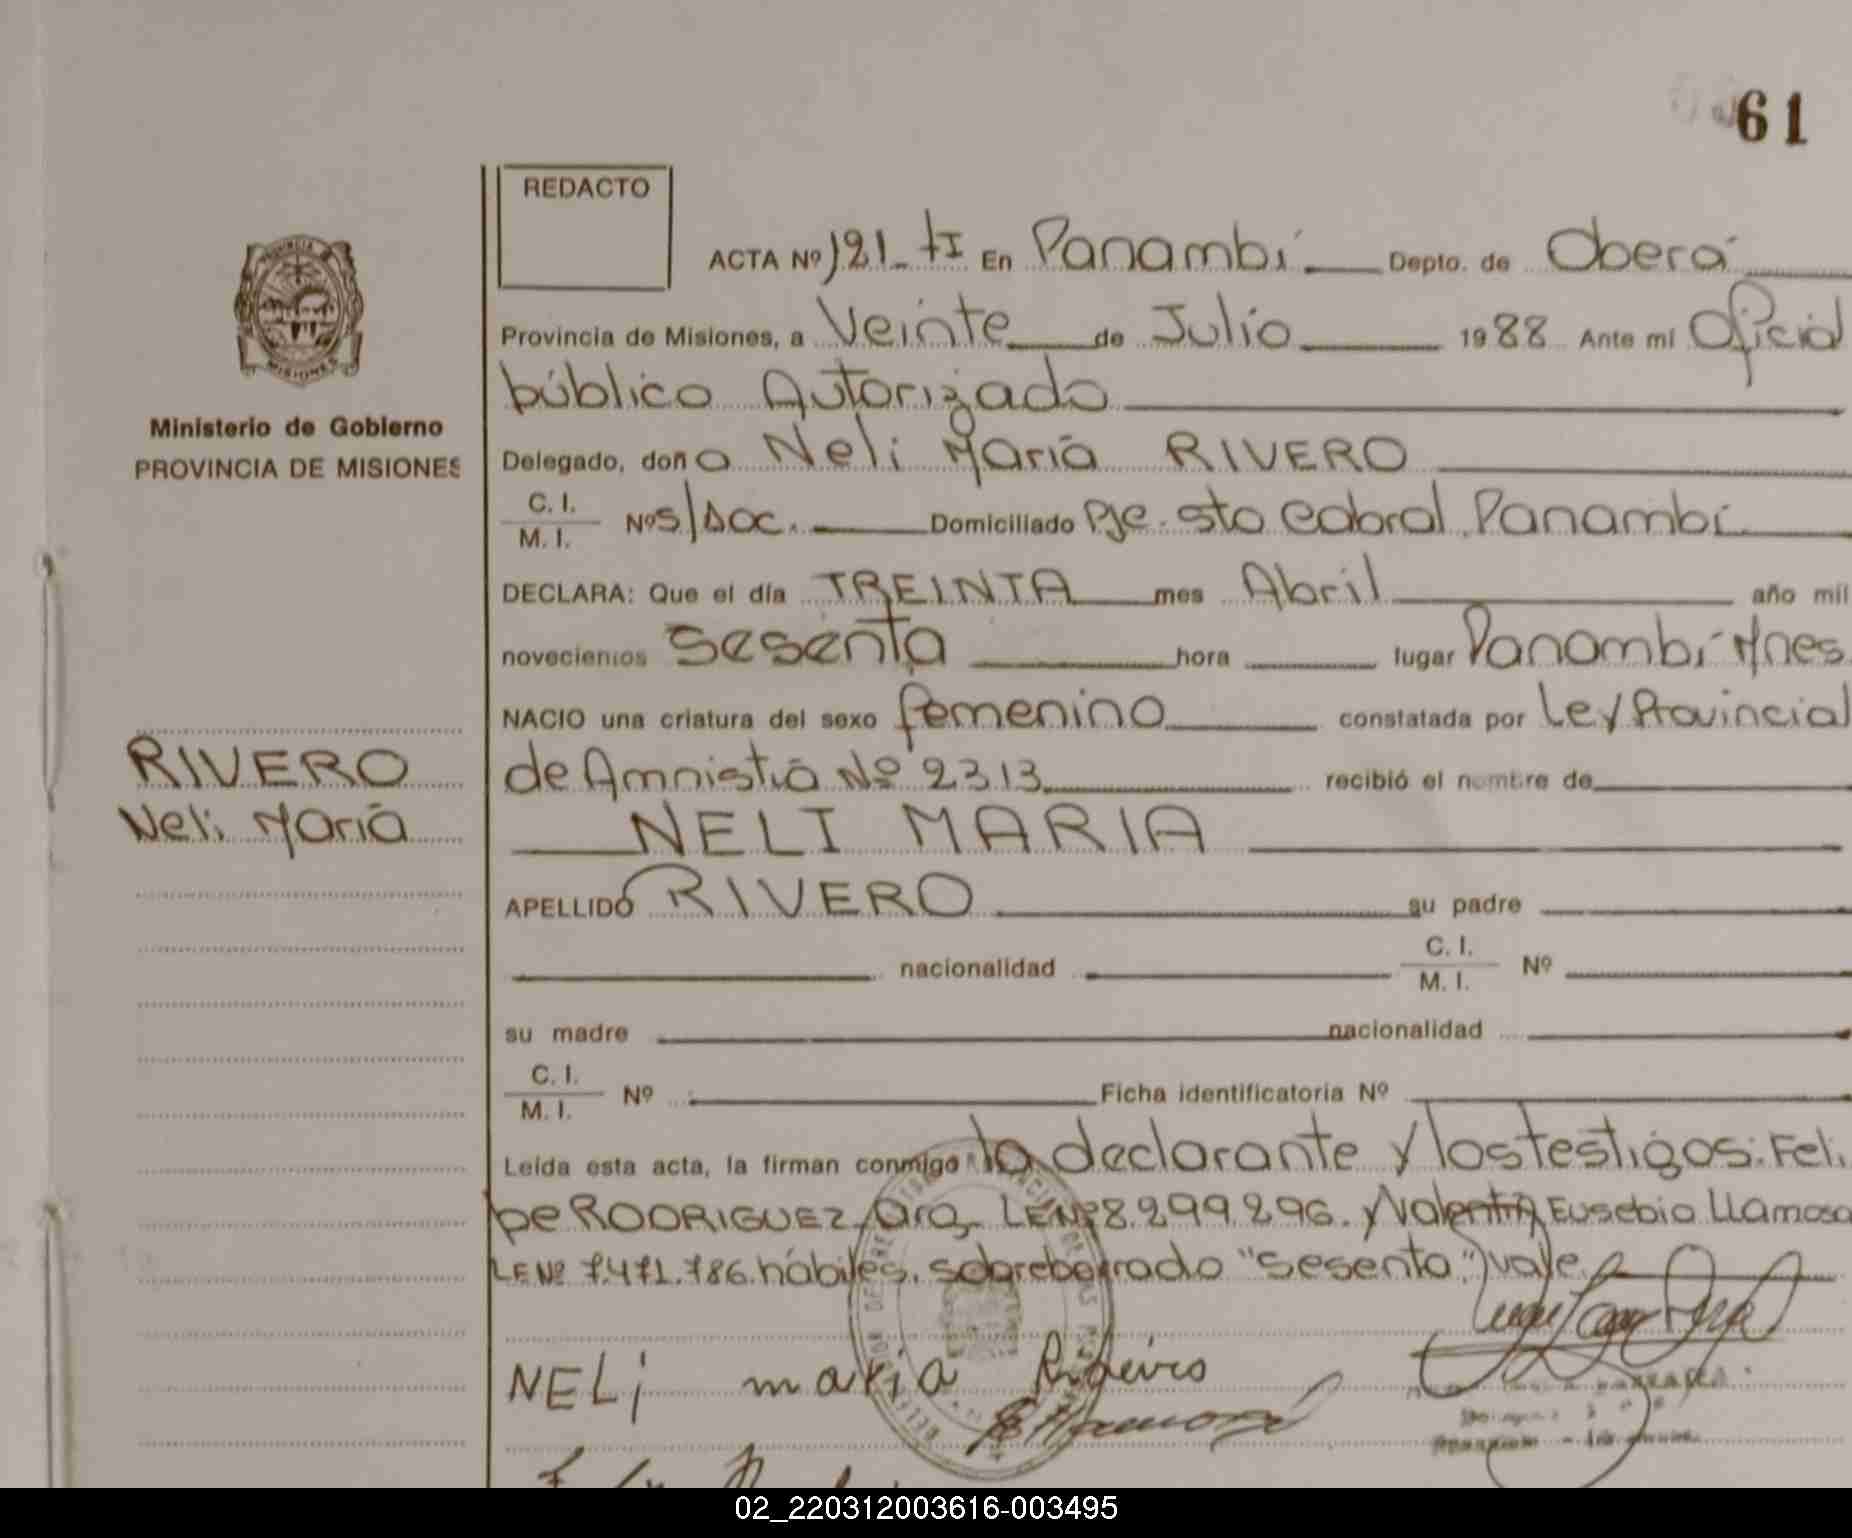 61
REDACTO
ACTA Nº 121_ tI En Panambí Depto. de Oberá
Provincia de Misiones, a Veinte de Julio 1988 Ante mi Oficial
público Autorizado
Ministerio de Gobierno
PROVINCIA DE MISIONES
Delegado, doña Neli María RIVERO
C. I.
M. I. Nº S/Doc. Domiciliado Pje. Sto Cabral Panambí
DECLARA: Que el día TREINTA mes Abril año mil
novecientos sesenta hora lugar Panambí Mnes
NACIO una criatura del sexo femenino constatada por Ley Provincial
RIVERO
Neli María
de Amnistía Nº 2313 recibió el nombre de
NELI MARIA
APELLIDO RIVERO su padre
nacionalidad C. I.
M. I. Nº
su madre nacionalidad
C. I.
M. I. Nº Ficha identificatoria Nº
Leída esta acta, la firman conmigo la declarante y los testigos: Feli
pe RODRIGUEZ, arg. LE Nº 8.299.296. y Valentín Eusebio Llamosa
LE Nº 7.471.786. hábiles. sobreborrado "sesenta" vale.
NELi maria Ribeiro
02_220312003616-003495